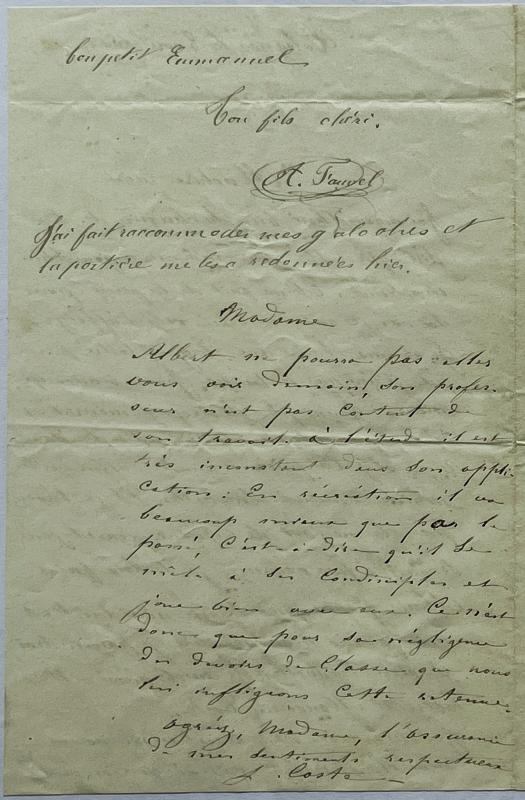 ton petit Emmanuel
Ton fils chéri.
A. Fauvel
J'ai fait raccommoder mes galoches et
la portière me les a redonnées hier.
Madame
Albert ne pourra pas aller
vous voir demain, son profes-
seur n'est pas content de
son travail. à l'étude il est
très inconstant dans son appli-
cation : En récréation il va
beaucoup mieux que par le
passé, C'est-à-dire qu'il se
mêle à ses Condisciples et
joue bien avec eux. Ce n'est
donc que pour sa négligence
des devoirs de Classe que nous
lui infligeons Cette retenue.
agréez, Madame, l'assurance
de mes sentiments respectueux
J. Coste